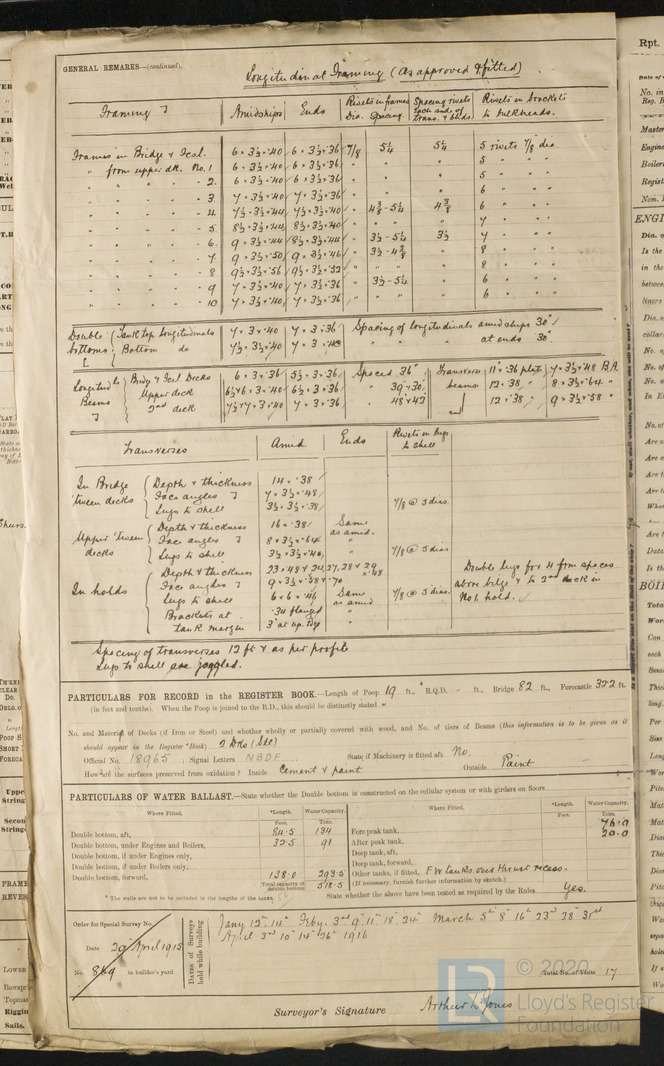 GENERAL REMARKS—(continued).
Longitudinal Framing (As approved & fitted)
Framing Amidships Ends Rivets in frames Dia. Spacing. Spacing rivets each side of trans. & bhds Rivets in brackets to bulkheads.
Frames in Bridge & Fcsl. 6 × 3½ × ·40 6 × 3½ × ·36 7/8 5¼ 5¼ 5 rivets 7/8 dia.
" from upper dk. No. 1 6 × 3½ × ·40 6 × 3½ × ·36 " " 5 "
" " " " 2 6 × 3½ × ·40 6 × 3½ × ·36 " " 5 "
" " " " 3 7 × 3½ × ·40 7 × 3½ × ·36 " " 6 "
" " " " 4 7½ × 3½ × ·44 7½ × 3½ × ·40 " 4⅜ - 5¼ 4⅜ 6 "
" " " " 5 8½ × 3½ × ·44 8½ × 3½ × ·40 " " " 7 "
" " " " 6 9 × 3½ × ·44 8½ × 3½ × ·44 " 3½ - 5¼ 3½ 7 "
" " " " 7 9 × 3½ × ·50 9 × 3½ × ·46 " 3½ - 4⅜ " 8 "
" " " " 8 9½ × 3½ × ·56 9½ × 3½ × ·52 " " " 8 "
" " " " 9 7 × 3½ × ·40 7 × 3½ × ·36 " 3½ - 5¼ " 6 "
" " " " 10 7 × 3½ × ·40 7 × 3½ × ·36 " " " 6 "
Double bottoms Tank top longitudinals 7 × 3 × ·40 7 × 3 × ·36 Spacing of longitudinals amidships 30"
Bottom do 7½ × 3½ × ·40 " " " at ends 30"
Longitudl Beams Bridge & Fcsl Decks 6 × 3 × ·36 5½ × 3 × ·36 Spaced 36" Transverse beams 11" × ·36 plate 7 × 3½ × ·48 B.A
Upper deck 6½ × 3 × ·40 6½ × 3 × ·36 " 39 & 30 12 × ·38 " 8 × 3½ × ·64 "
2nd deck 7½ × 7 × 3 × ·40 7 × 3 × ·36 " 48 & 42 12 × ·38 " 9 × 3½ × ·58 "
Transverses Amid Ends Rivets in lugs to shell
In Bridge 'tween decks Depth & thickness 14 × ·38
Face angles 7 × 3½ × ·48
Lugs to shell 3½ × 3½ × ·38 7/8 @ 5 dias.
Upper 'tween decks Depth & thickness 16 × ·38 Same as amid.
Face angles 8 × 3½ × ·64 "
Lugs to shell 3½ × 3½ × ·40 " 7/8 @ 5 dias
In holds Depth & thickness
Face angles 9 × 3½ × ·58 × ·70
Lugs to shell 6 × 6 × ·46 Same as amid 7/8 @ 5 dias.
Brackets at tank margin ·34 flanged "
Double lugs for 4 frm spaces
above bilge & to 2nd deck in
No 1. hold.
Spacing of transverses 12 ft & as per profile
Lugs to shell are joggled.
PARTICULARS FOR RECORD in the REGISTER BOOK.—Length of Poop 19 ft., R.Q.D. - ft., Bridge 82 ft., Forecastle 32·2 ft.
(in feet and tenths). When the Poop is joined to the B.D., this should be distinctly stated "
No. and Material of Decks (if Iron or Steel) and whether wholly or partially covered with wood, and No. of tiers of Beams (this information is to be given as it
should appear in the Register Book). 2 Dks (Stl)
Official No. 18965 ; Signal Letters NBDF State if Machinery is fitted aft No.
How are the surfaces preserved from oxidation? Inside Cement & paint Outside Paint
PARTICULARS OF WATER BALLAST.—State whether the Double bottom is constructed on the cellular system or with girders on floors
Where Fitted. *Length. Water Capacity. Where Fitted. *Length. Water Capacity.
Feet. Tons. Feet. Tons.
Double bottom, aft, 84·5 134 Fore peak tank, 76·0
Double bottom, under Engines and Boilers, 32·5 91 After peak tank, 20·0
Double bottom, if under Engines only, Deep tank, aft,
Double bottom, if under Boilers only, Deep tank, forward,
Double bottom, forward, 138·0 293·5 Other tanks, if fitted, F W tanks over thrust recess.
Total capacity of double bottom 518·5 (If necessary, furnish further information by sketch.)
* The wells are not to be included in the lengths of the tanks. State whether the above have been tested as required by the Rules Yes.
Order for Special Survey No.
Date 29 April 1915
No. 869 in builder's yard
Dates of Surveys held while building
Jany 12th 14th Feby. 3rd 9th 11th 18th 24th March 5th 8th 16th 23rd 28th 31st
April 3rd 10th 14th 26th 1916
Total No. of Visits 17
Surveyor's Signature Arthur L. Jones
© 2020
Lloyd's Register
Foundation